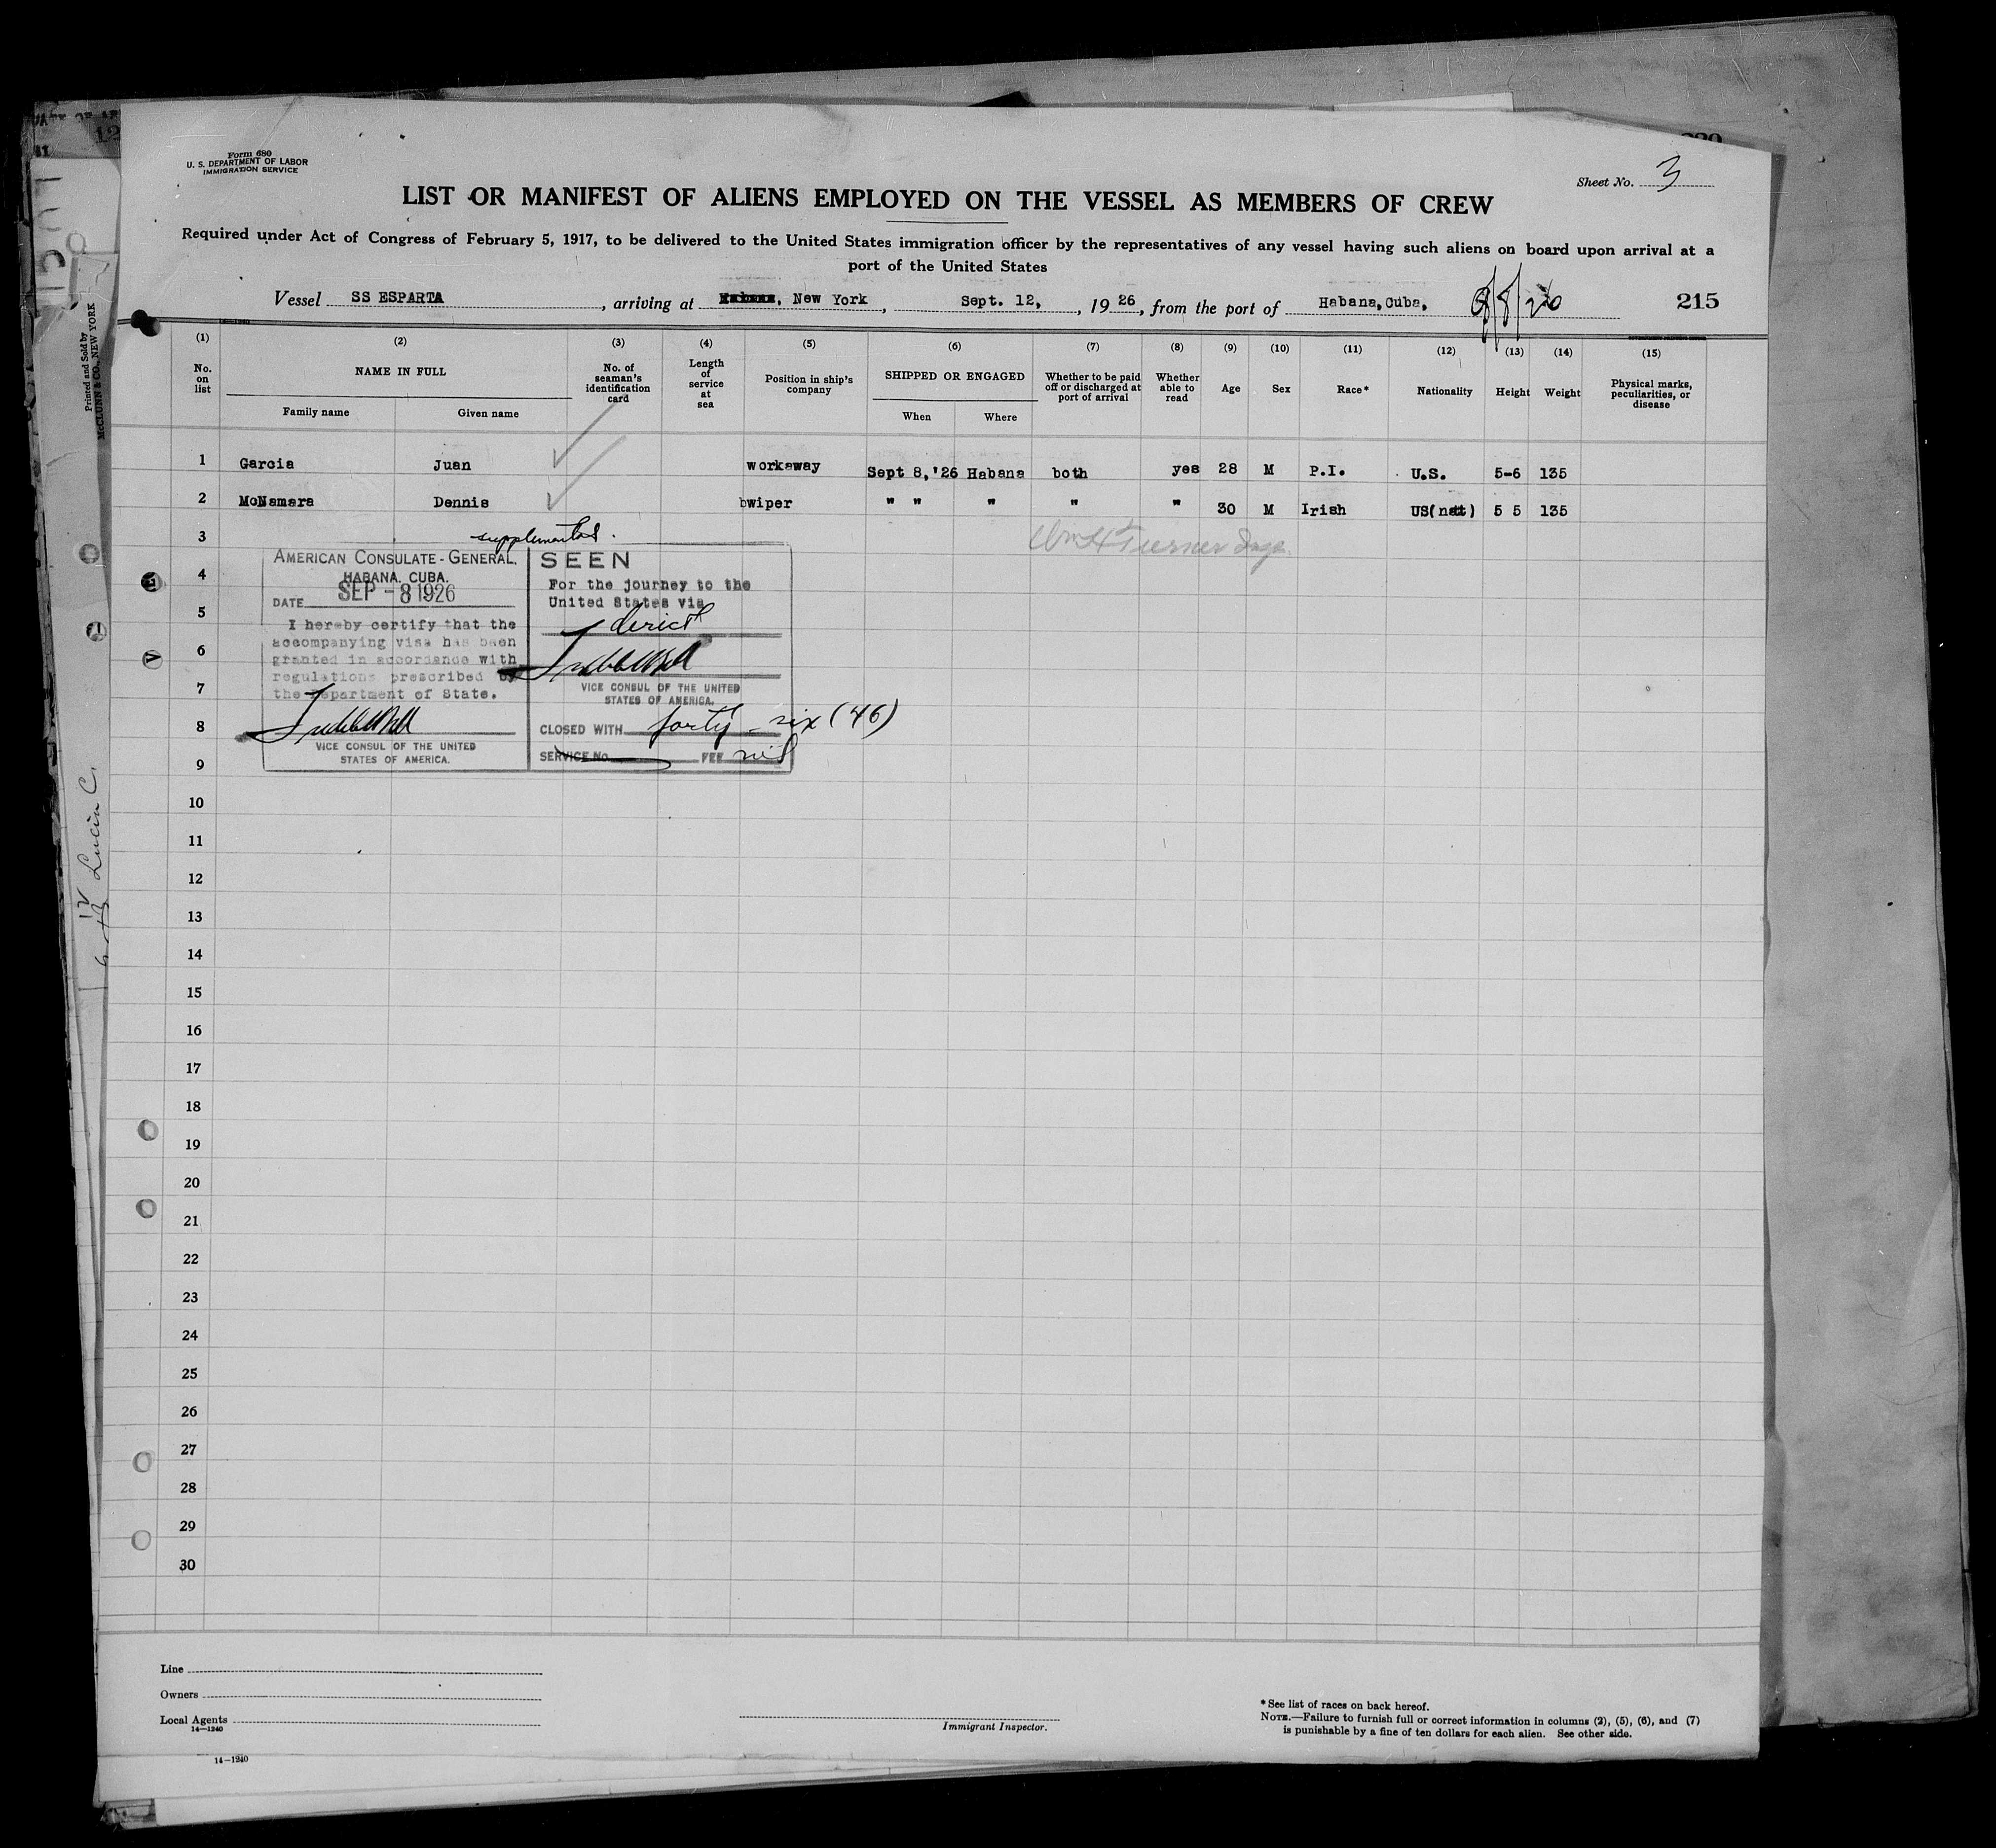 Form 680
U. S. DEPARTMENT OF LABOR
IMMIGRATION SERVICE
Sheet No. 3
LIST OR MANIFEST OF ALIENS EMPLOYED ON THE VESSEL AS MEMBERS OF CREW
Required under Act of Congress of February 5, 1917, to be delivered to the United States immigration officer by the representatives of any vessel having such aliens on board upon arrival at a
port of the United States
Vessel SS ESPARTA, arriving at Habana, New York, Sept. 12, 1926, from the port of Habana, Cuba, 9/8/26 215
14-1240
(1) (2) (3) (4) (5) (6) (7) (8) (9) (10) (11) (12) (13) (14) (15)
No. on list
NAME IN FULL
Family name Given name
No. of seaman's identification card
Length of service at sea
Position in ship's company
SHIPPED OR ENGAGED
When Where
Whether to be paid off or discharged at port of arrival
Whether able to read
Age Sex Race* Nationality Height Weight
Physical marks, peculiarities, or disease
1 Garcia Juan workaway Sept 8, '26 Habana both yes 28 M P.I. U.S. 5-6 135
2 McNamara Dennis wiper " " " " " 30 M Irish US(nat) 5 5 135
3
supplemental.
Wm H Turner Insp.
AMERICAN CONSULATE-GENERAL,
HABANA, CUBA.
DATE SEP - 8 1926
I hereby certify that the
accompanying visa has been
granted in accordance with
regulations prescribed by
the Department of State.
VICE CONSUL OF THE UNITED
STATES OF AMERICA.
SEEN
For the journey to the
United States via
direct
VICE CONSUL OF THE UNITED
STATES OF AMERICA.
CLOSED WITH forty-six (46)
SERVICE No. FEE nil
4
5
6
7
8
9
10
11
12
13
14
15
16
17
18
19
20
21
22
23
24
25
26
27
28
29
30
Line
Owners
Local Agents
14-1240
Immigrant Inspector.
* See list of races on back hereof.
NOTE.—Failure to furnish full or correct information in columns (2), (5), (6), and (7)
is punishable by a fine of ten dollars for each alien. See other side.
14-1240
Printed and Sold by
McCLUNN & CO., NEW YORK
Lucin C.